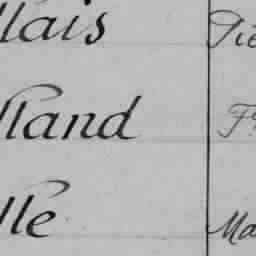 llais Pie
lland Fr
lle Ma